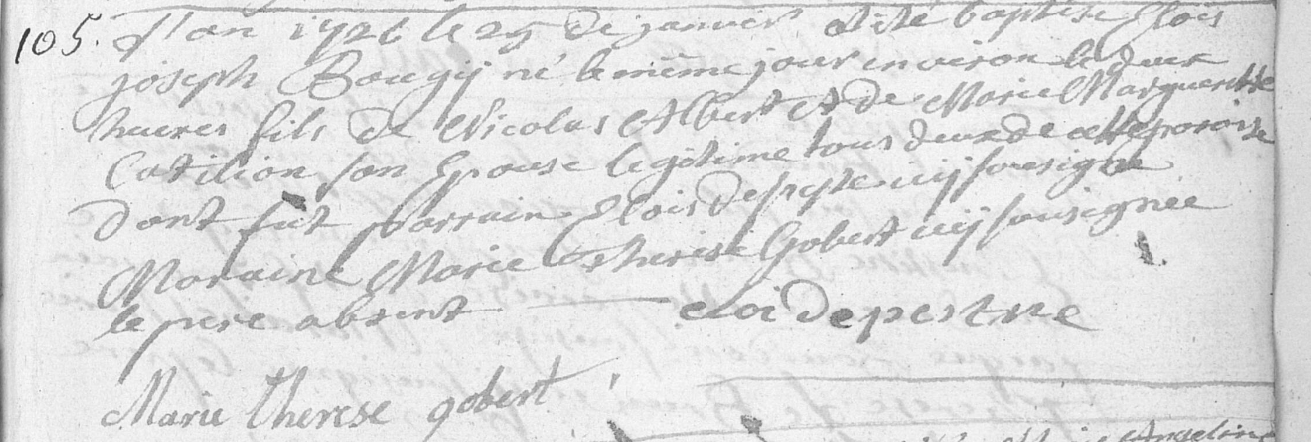 105. L'an 1726 le 25 de janvier at été baptisé Elois
joseph Bougij né le même jour environ les deux
heures fils de Nicolas Albert et de Marie Margueritte
Catilion son Epouse legitime tous deux de cette paroisse
Dont fut parrain Elois Depestre icij sousigné
Maraine Marie Therese Gobert icij sousignée
le pere absent eloi Depestre
Marie therese gobert